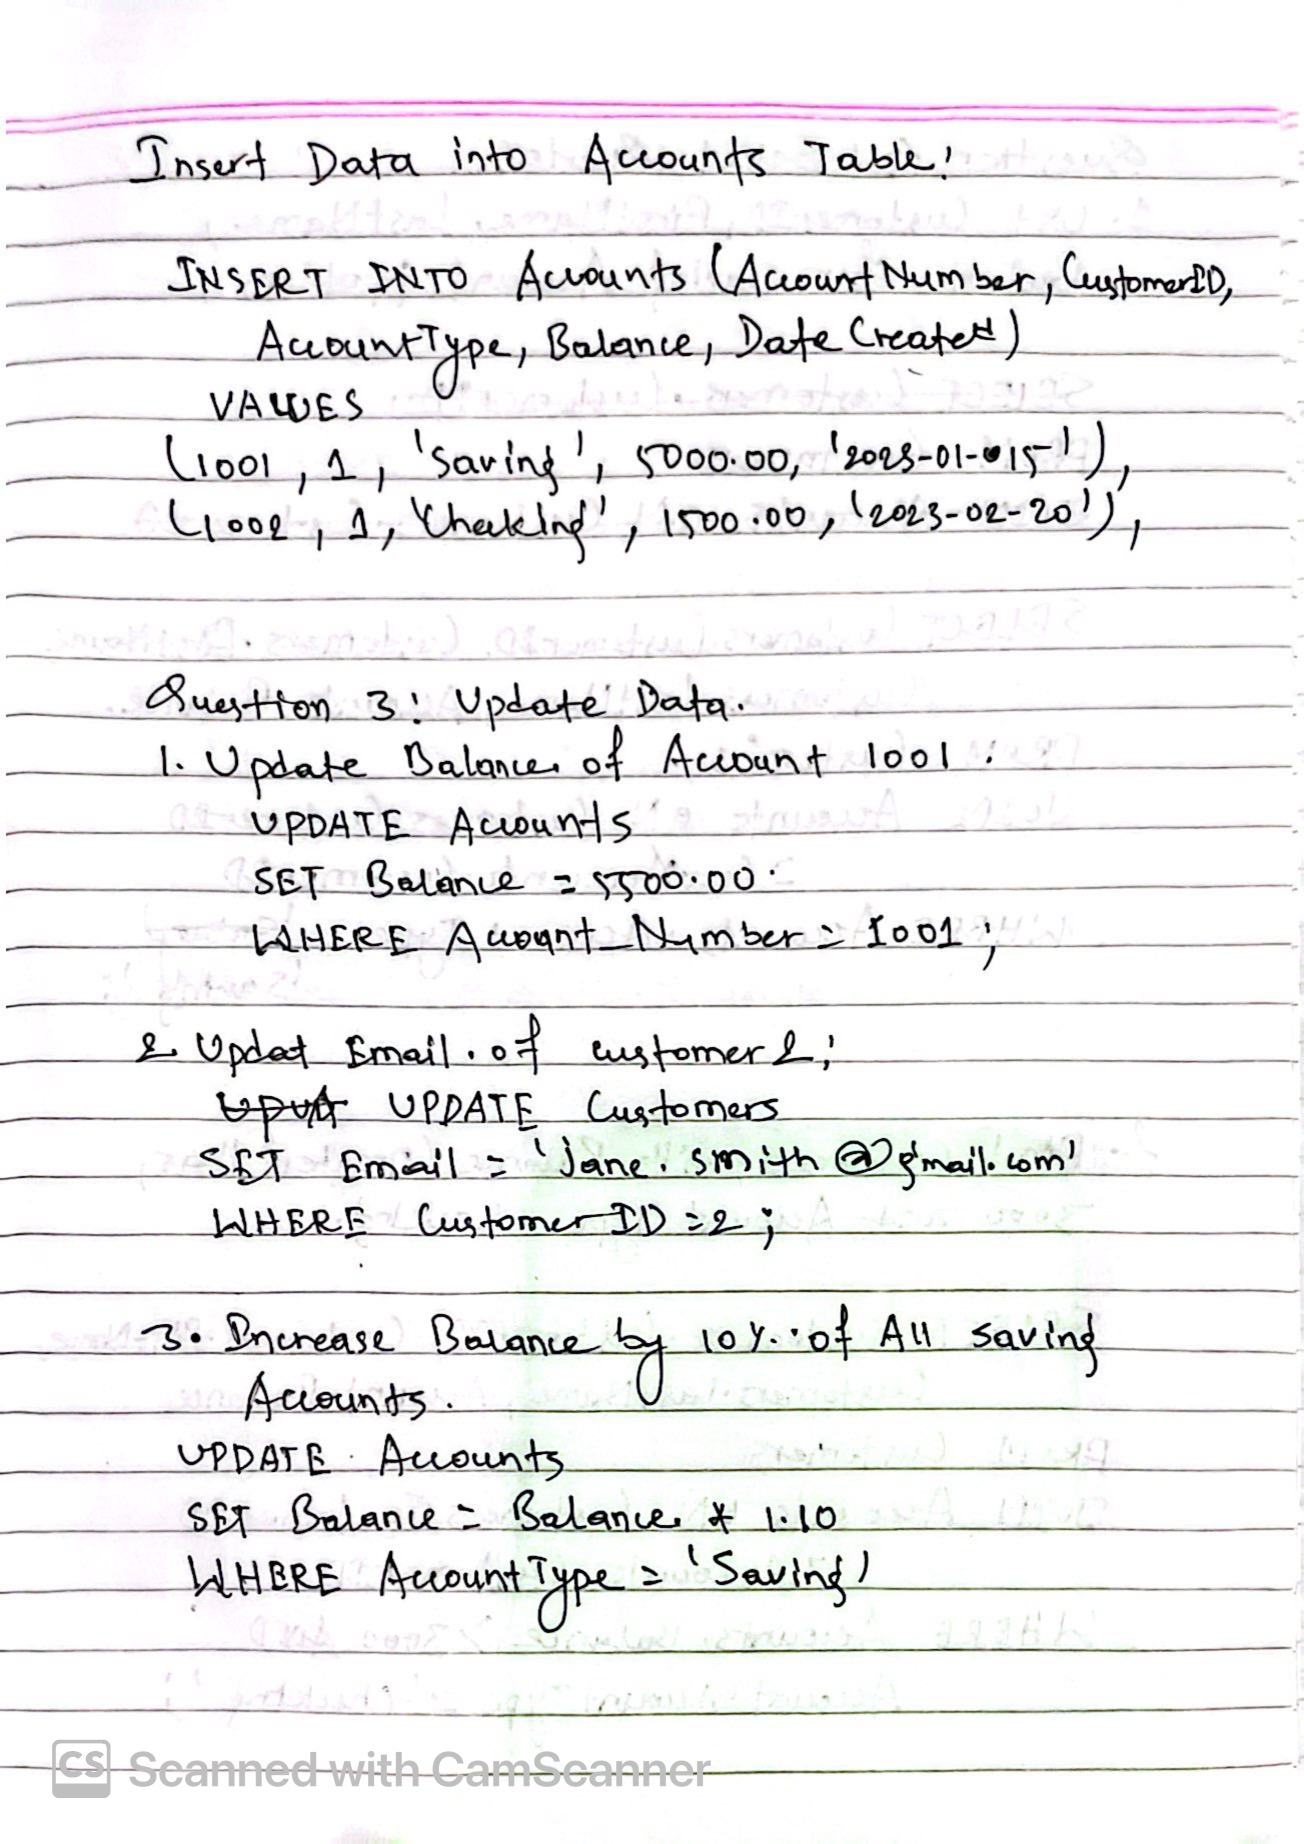 Insert Data into Accounts Table:
INSERT INTO Accounts (AccountNumber, CustomerID,
AccountType, Balance, DateCreated)
VALUES
(1001, 1, 'Saving', 5000.00, '2023-01-15'),
(1002, 1, 'Checking', 1500.00, '2023-02-20'),
Question 3: Update Data.
1. Update Balance of Account 1001.
UPDATE Accounts
SET Balance = 5500.00
WHERE Account_Number = 1001;
2 Updat Email of customer 2;
UPDATE Customers
SET Email = 'jane.smith@gmail.com'
WHERE CustomerID = 2;
3. Increase Balance by 10% of All saving
Accounts.
UPDATE Accounts
SET Balance = Balance * 1.10
WHERE AccountType = 'Saving'
CS Scanned with CamScanner